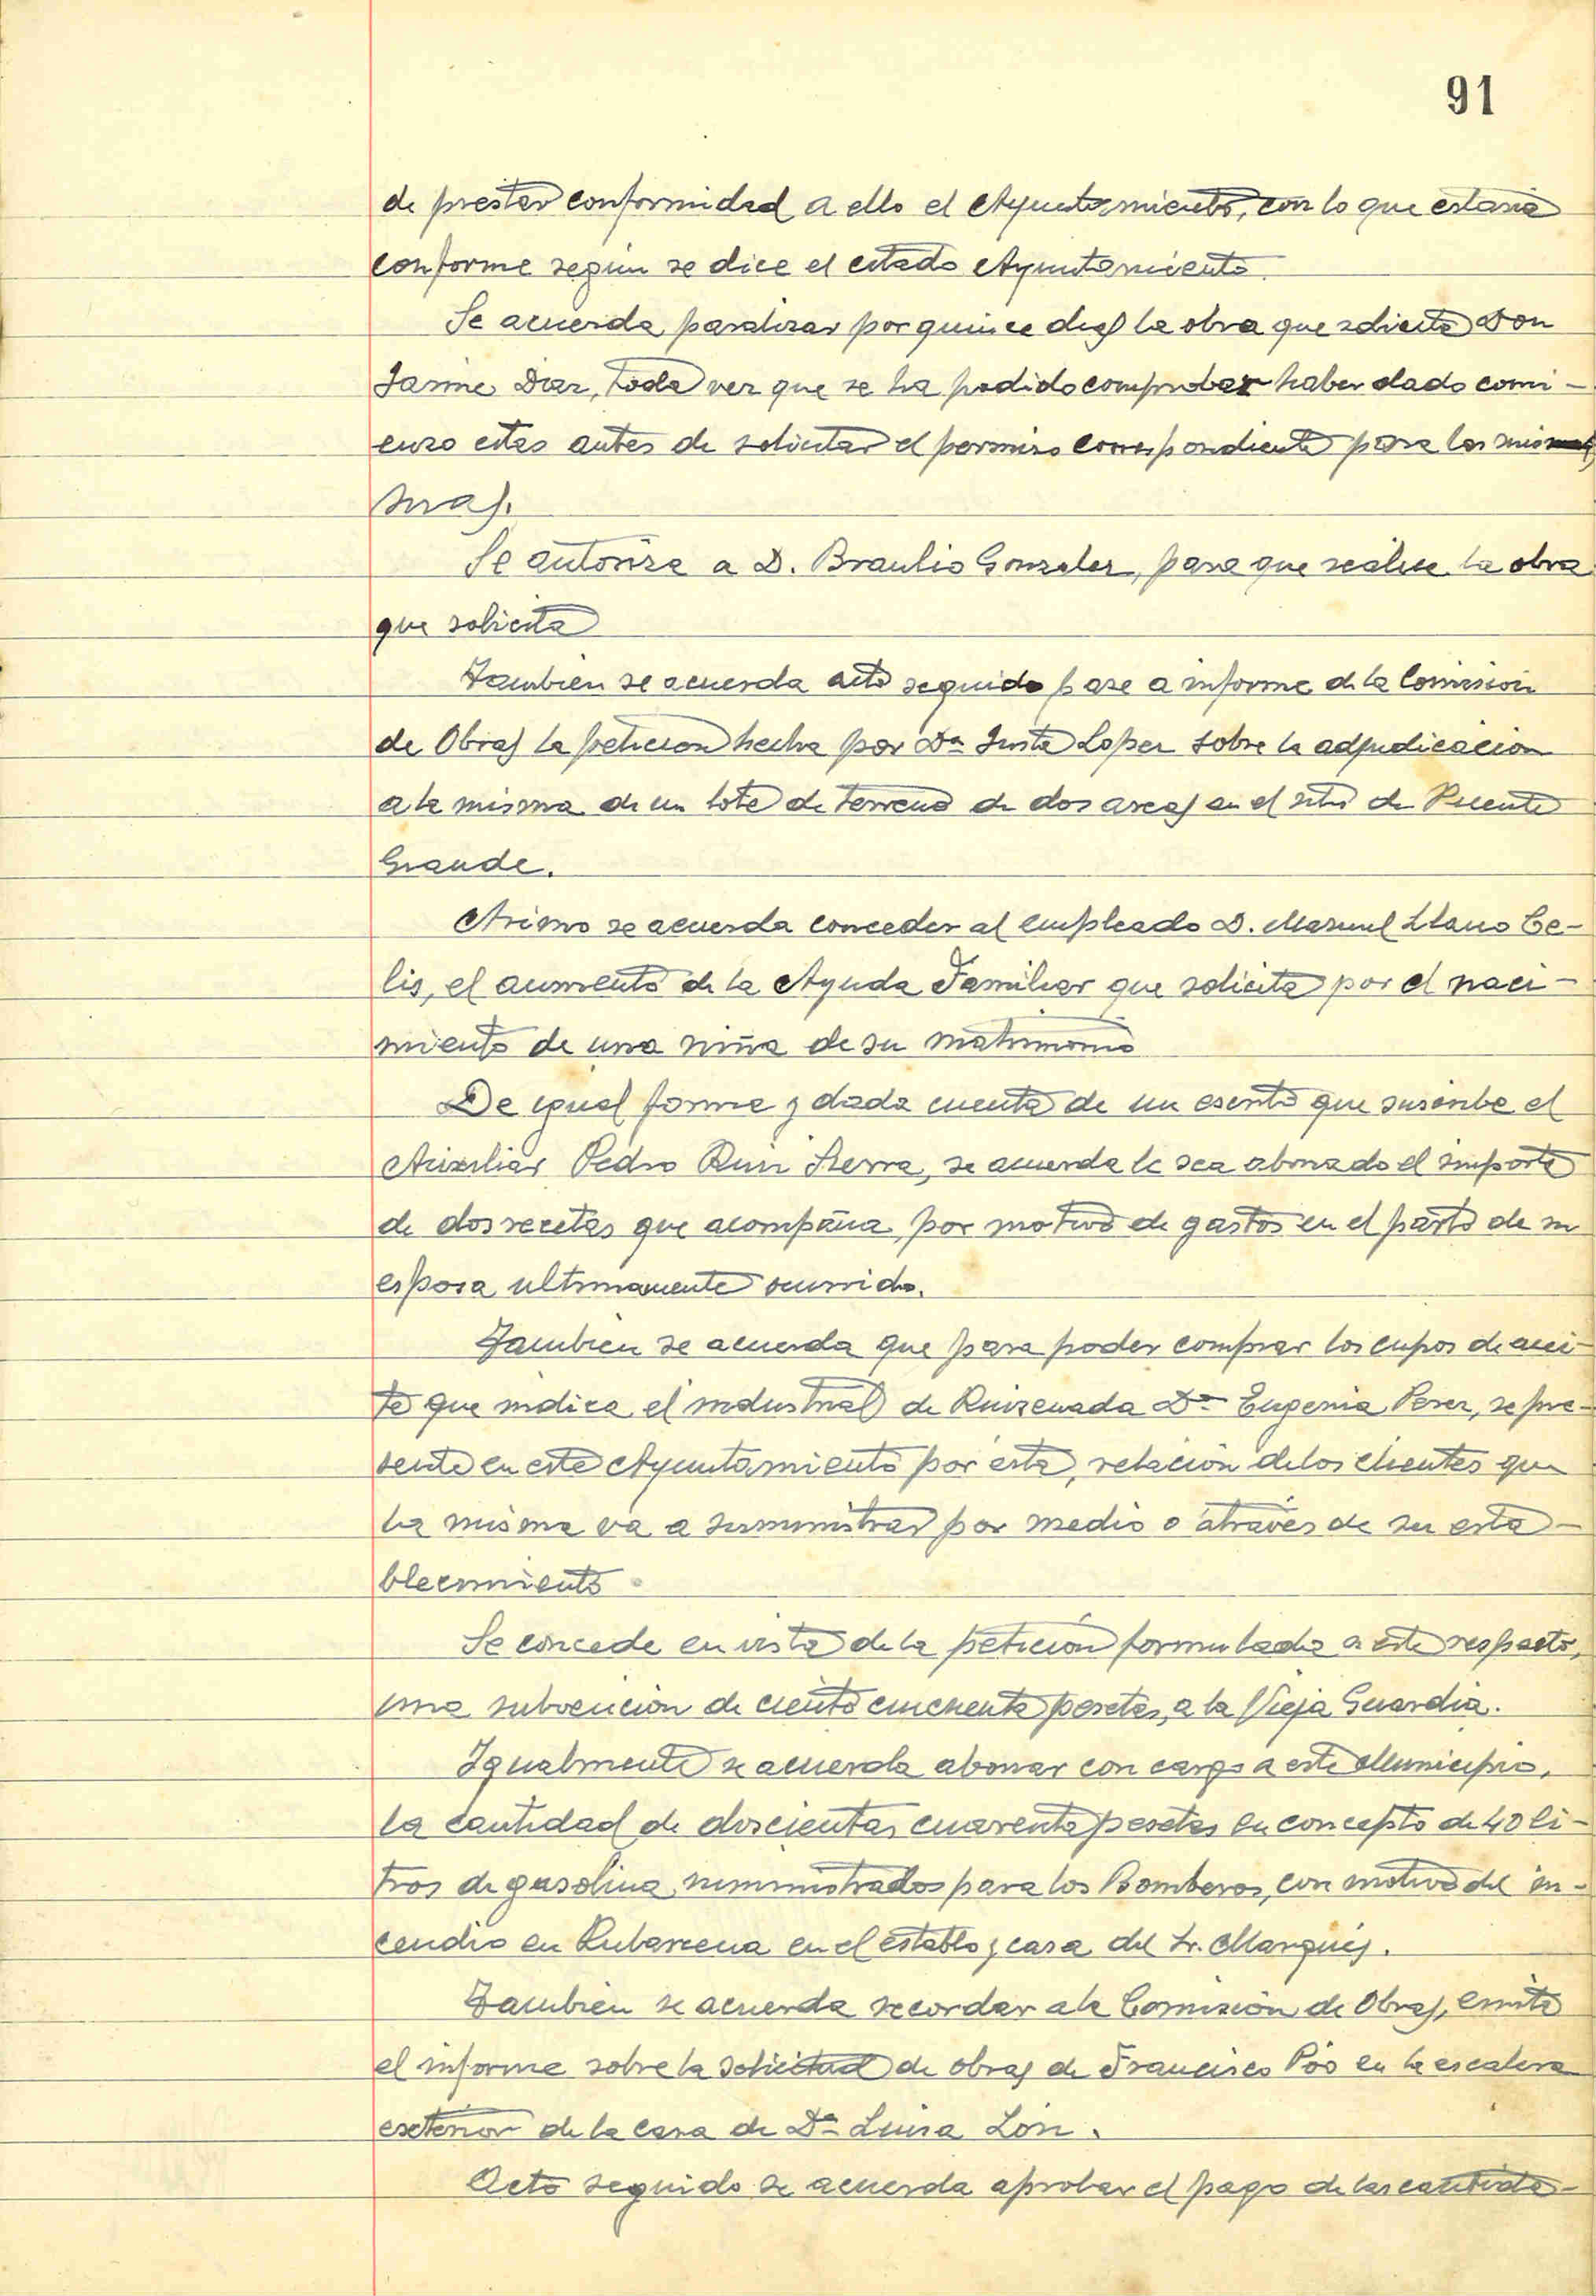 91
de prestar conformidad a ello el Ayuntamiento, con lo que estaria
conforme según se dice el citado Ayuntamiento.
Se acuerda paralizar por quince dias la obra que solicita Don
Jaime Diaz, toda vez que se ha podido comprobar haber dado comi-
enzo estas antes de solicitar el permiso correspondiente para las mis
mas.
Se autoriza a D. Braulio Gonzalez, para que realice la obra
que solicita
Tambien se acuerda acto seguido pase a informe de la Comision
de Obras la peticion hecha por Dª Justa Lopez sobre la adjudicacion
a la misma de un lote de terreno de dos areas en el sitio de Puente
Grande.
Asimo se acuerda conceder al empleado D. Manuel Llano Ce-
lis, el aumento de la Ayuda Familiar que solicita por el naci-
miento de una niña de su matrimonio
De igual forma y dada cuenta de un escrito que suscribe el
Auxiliar Pedro Ruiz Sierra, se acuerda le sea abonado el importe
de dos recetas que acompaña, por motivo de gastos en el parto de su
esposa ultimamente ocurrido.
Tambien se acuerda que para poder comprar los cupos de acei-
te que indica el industrial de Ruizeñada Dª Eugenia Perez, se pre-
sente en este Ayuntamiento por esta, relación de los clientes que
la misma va a suministrar por medio o através de su esta-
blecimiento.
Se concede en vista de la petición formulada a este respecto,
una subvencion de ciento cincuenta pesetas, a la Vieja Guardia.
Igualmente se acuerda abonar con cargo a este Municipio,
la cantidad de doscientas cuarenta pesetas en concepto de 40 li-
tros de gasolina suministrados para los Bomberos, con motivo del in-
cendio en Rubarcena en el establo y casa del Sr. Marqués.
También se acuerda recordar a la Comisión de Obras, emita
el informe sobre la solicitud de obras de Francisco Pós en la escalera
exterior de la casa de Dª Luisa Lón.
Acto seguido se acuerda aprobar el pago de las cantida-